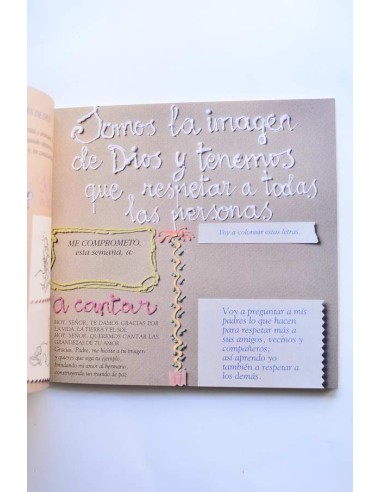 Somos la imagen
de Dios y tenemos
que respetar a todas
las personas
ME COMPROMETO,
esta semana, a:
Voy a colorear estas letras.
a cantar
HOY, SEÑOR, TE DAMOS GRACIAS POR
LA VIDA, LA TIERRA Y EL SOL.
HOY, SEÑOR, QUEREMOS CANTAR LAS
GRANDEZAS DE TU AMOR.
Gracias, Padre, me hiciste a tu imagen
y quieres que siga tu ejemplo,
brindando mi amor al hermano,
construyendo un mundo de paz.
Voy a preguntar a mis
padres lo que hacen
para respetar más a
sus amigos, vecinos y
compañeros;
así aprendo yo
también a respetar a
los demás.